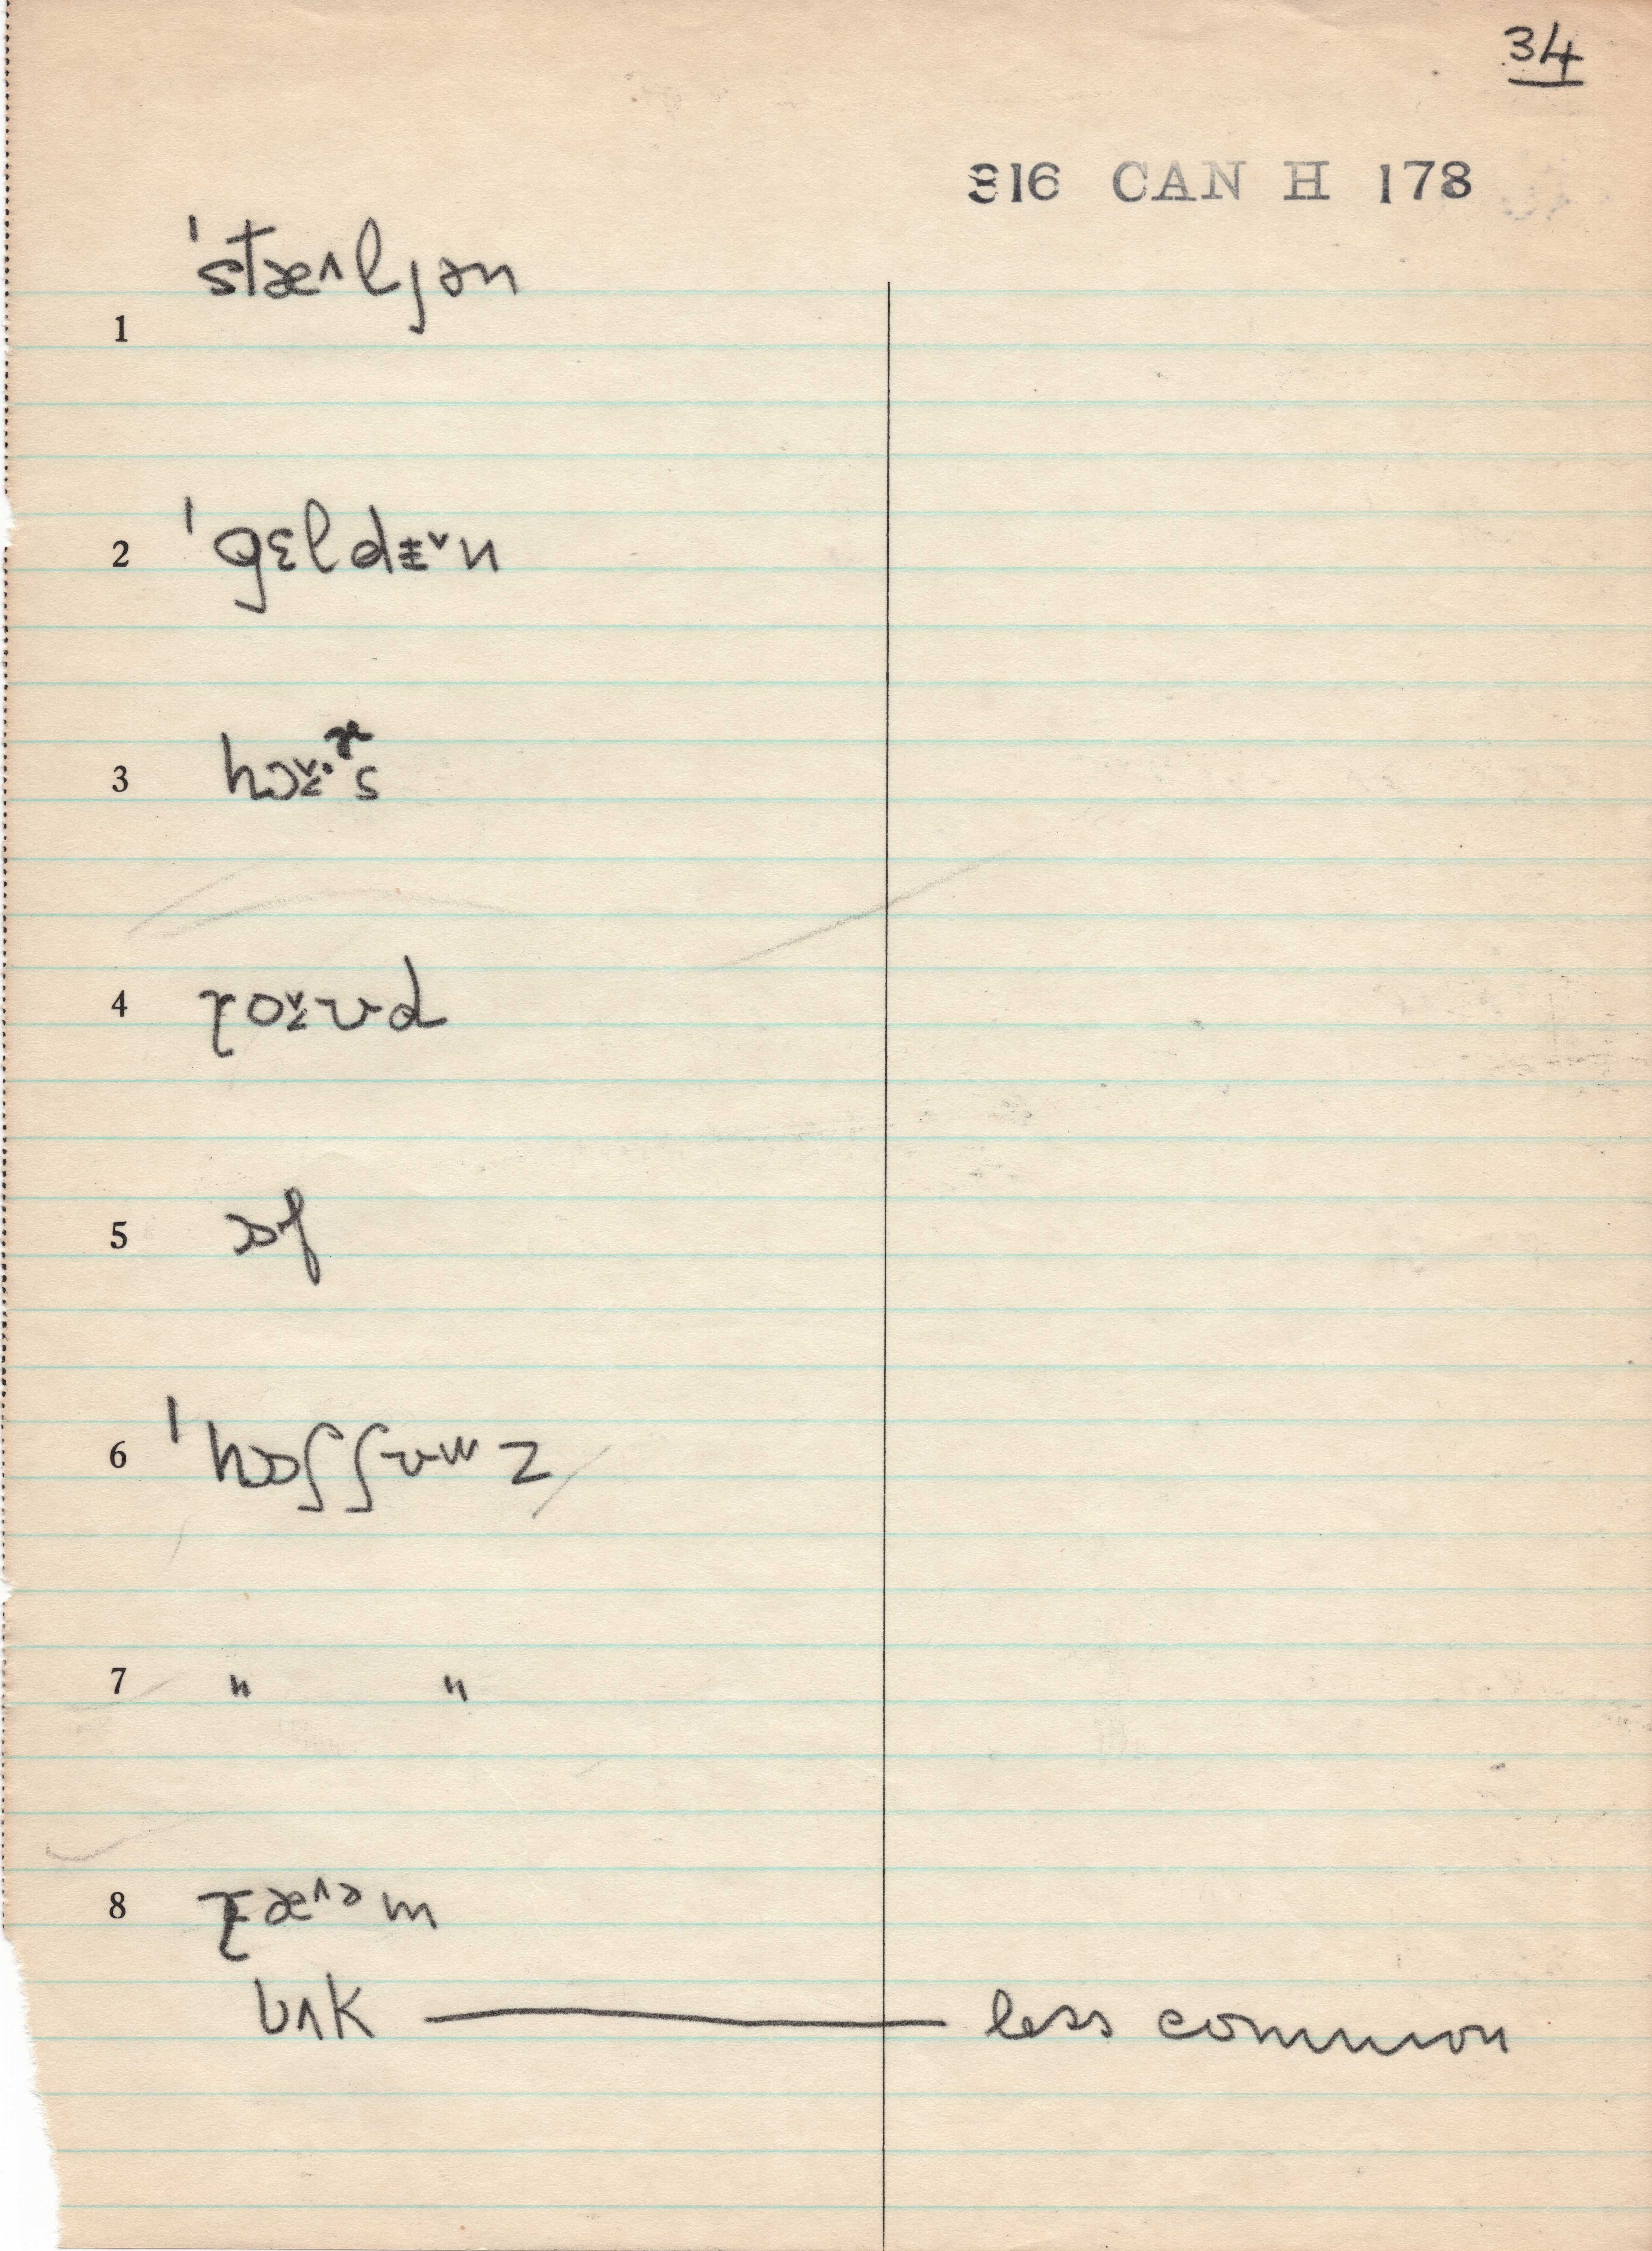 34
316 CAN H 178
1 ˈstæ˄ljən
2 ˈgɛldɨ˅n
3 hɔ˞s
4 ɽod
5 ɒf
6 ˈhɒʃʃ z
7 〃 〃
8 ɽæ˄ᵊm
bʌk —— less common